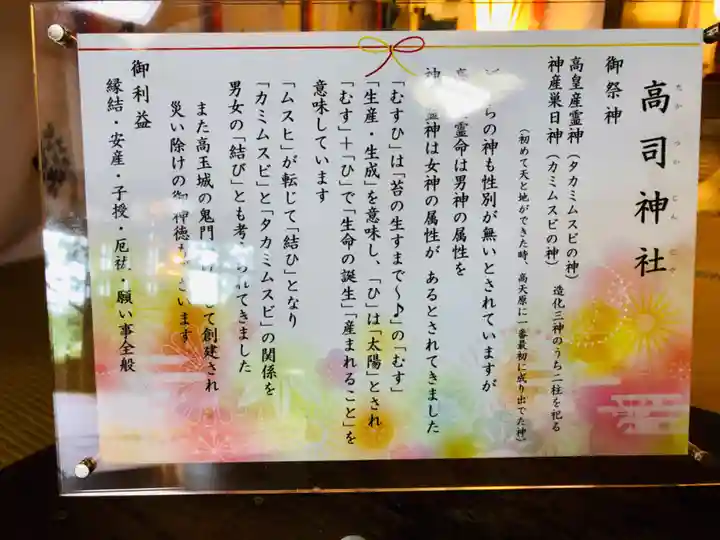 高司神社
たかつかじんじゃ
御祭神
高皇産霊神（タカミムスビの神）
神産巣日神（カミムスビの神）
造化三神のうち二柱を祀る
（初めて天と地ができた時、高天原に一番最初に成り出でた神）
らの神も性別が無いとされていますが
霊命は男神の属性を
霊神は女神の属性が あるとされてきました
「むすひ」は「苔の生すまで～♪」の「むす」
「生産・生成」を意味し、「ひ」は「太陽」とされ
「むす」＋「ひ」で「生命の誕生」「産まれること」を
意味しています
「ムスヒ」が転じて「結ひ」となり
「カミムスビ」と「タカミムスビ」の関係を
男女の「結び」とも考 られてきました
また高玉城の鬼門 して創建され
災い除けの御神徳 ざいます
御利益
縁結・安産・子授・厄祓・願い事全般